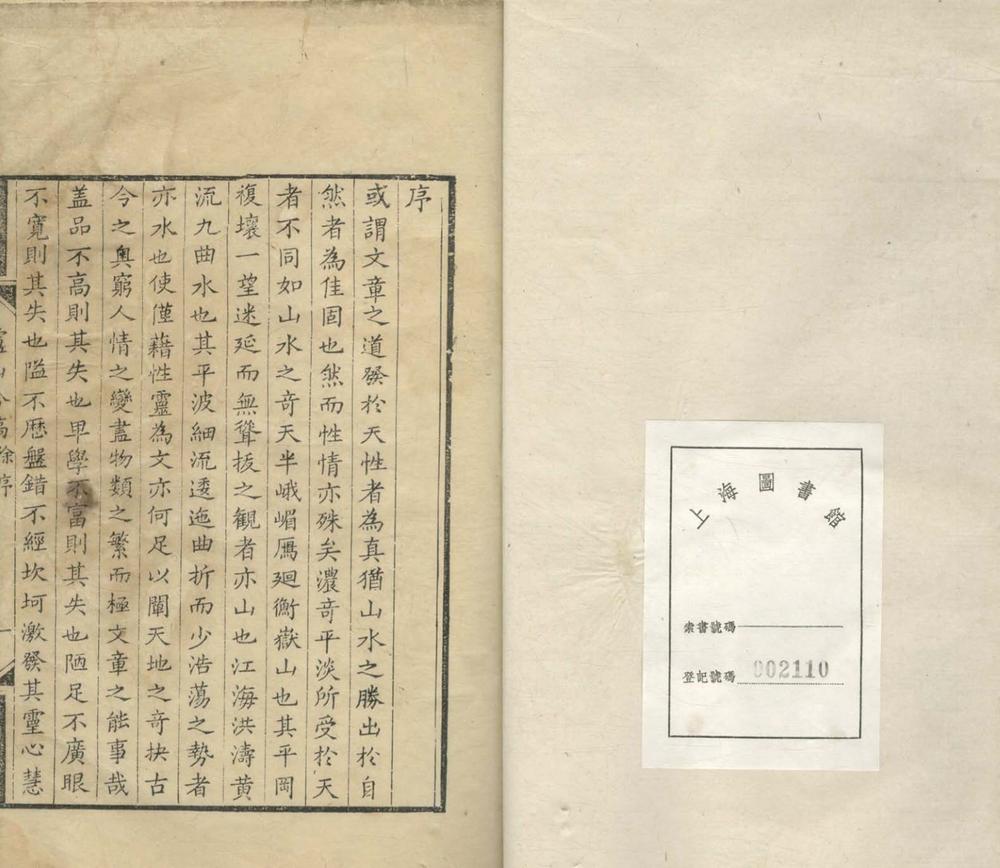 上海圖書館
索書號碼
登記號碼 002110
序
或謂文章之道發於天性者為真猶山水之勝出於自
然者為佳固也然而性情亦殊矣濃竒平淡所受於天
者不同如山水之竒天半峨嵋鴈廻衡嶽山也其平岡
複壤一望迷延而無聳拔之觀者亦山也江海洪濤黄
流九曲水也其平波細流逶迤曲折而少浩蕩之勢者
亦水也使僅藉性靈為文亦何足以闡天地之竒抉古
今之奥窮人情之變盡物類之繁而極文章之能事哉
盖品不高則其失也卑學不富則其失也陋足不廣眼
不寛則其失也隘不歷盤錯不經坎坷激發其靈心慧
序